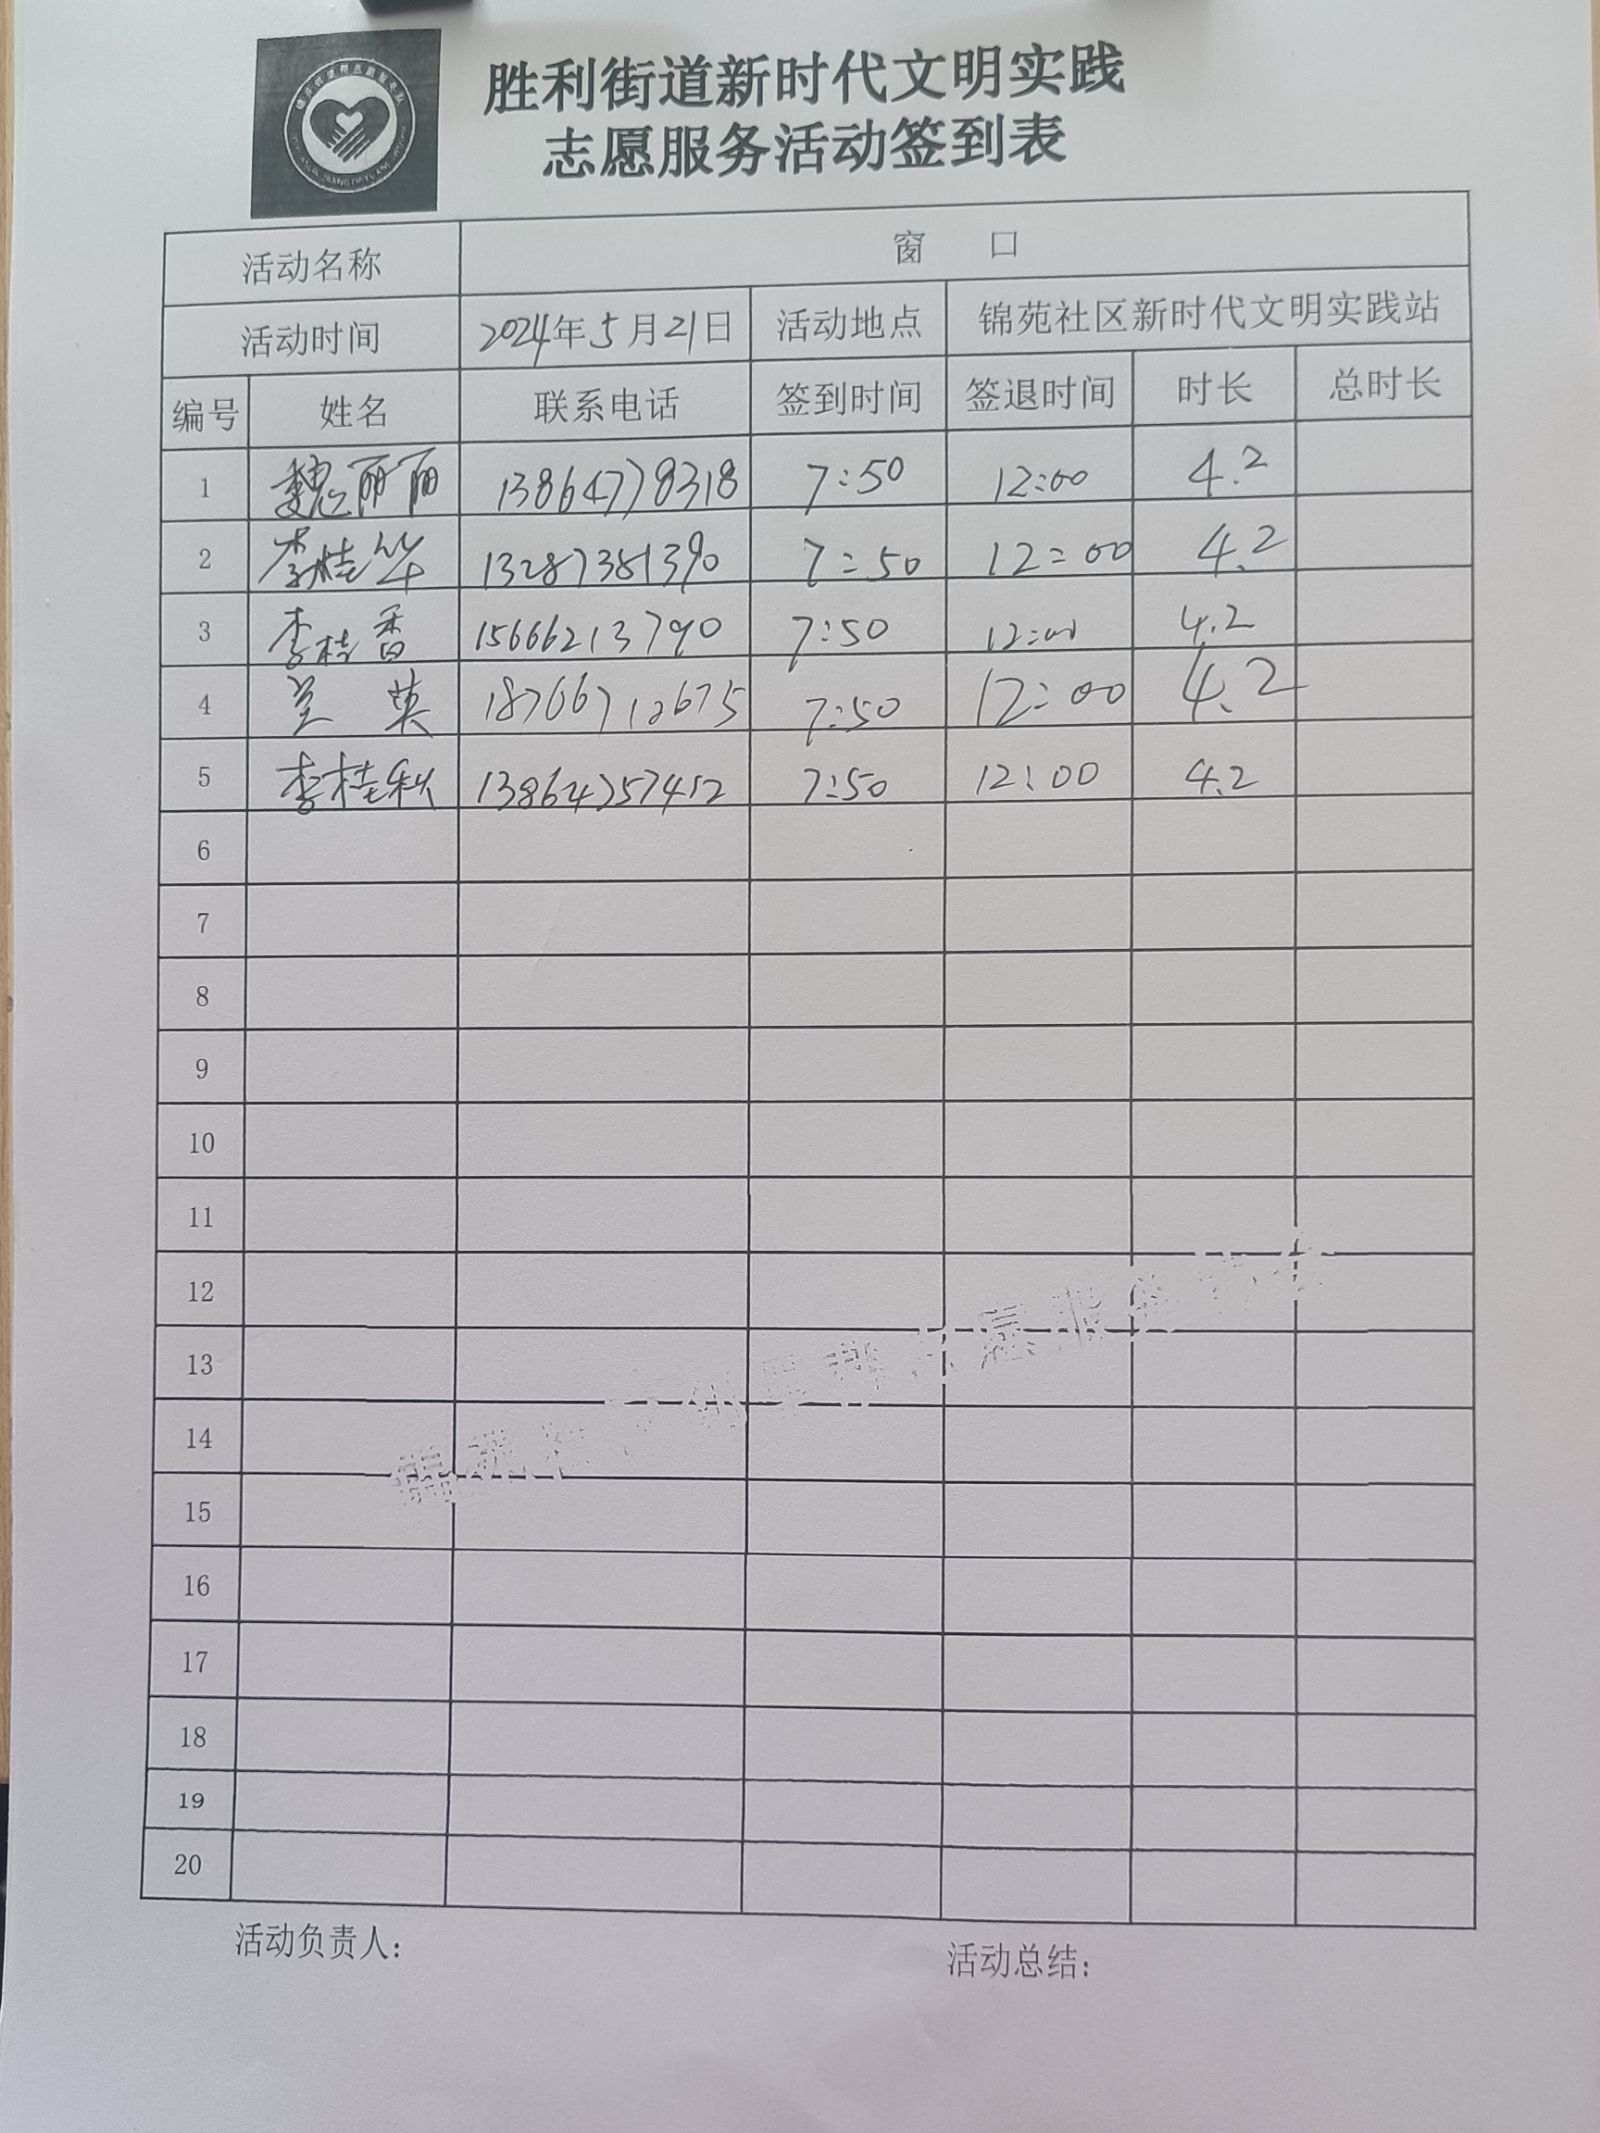 胜利街道新时代文明实践
志愿服务活动签到表
活动名称 窗 口
活动时间 2024年5月21日 活动地点 锦苑社区新时代文明实践站
编号 姓名 联系电话 签到时间 签退时间 时长 总时长
1 魏丽丽 13864778318 7:50 12:00 4.2
2 李桂华 13287381390 7:50 12:00 4.2
3 李桂香 15666213790 7:50 12:00 4.2
4 兰英 18766712675 7:50 12:00 4.2
5 李桂秋 13864757412 7:50 12:00 4.2
6
7
8
9
10
11
12
13
14
15
16
17
18
19
20
活动负责人： 活动总结：